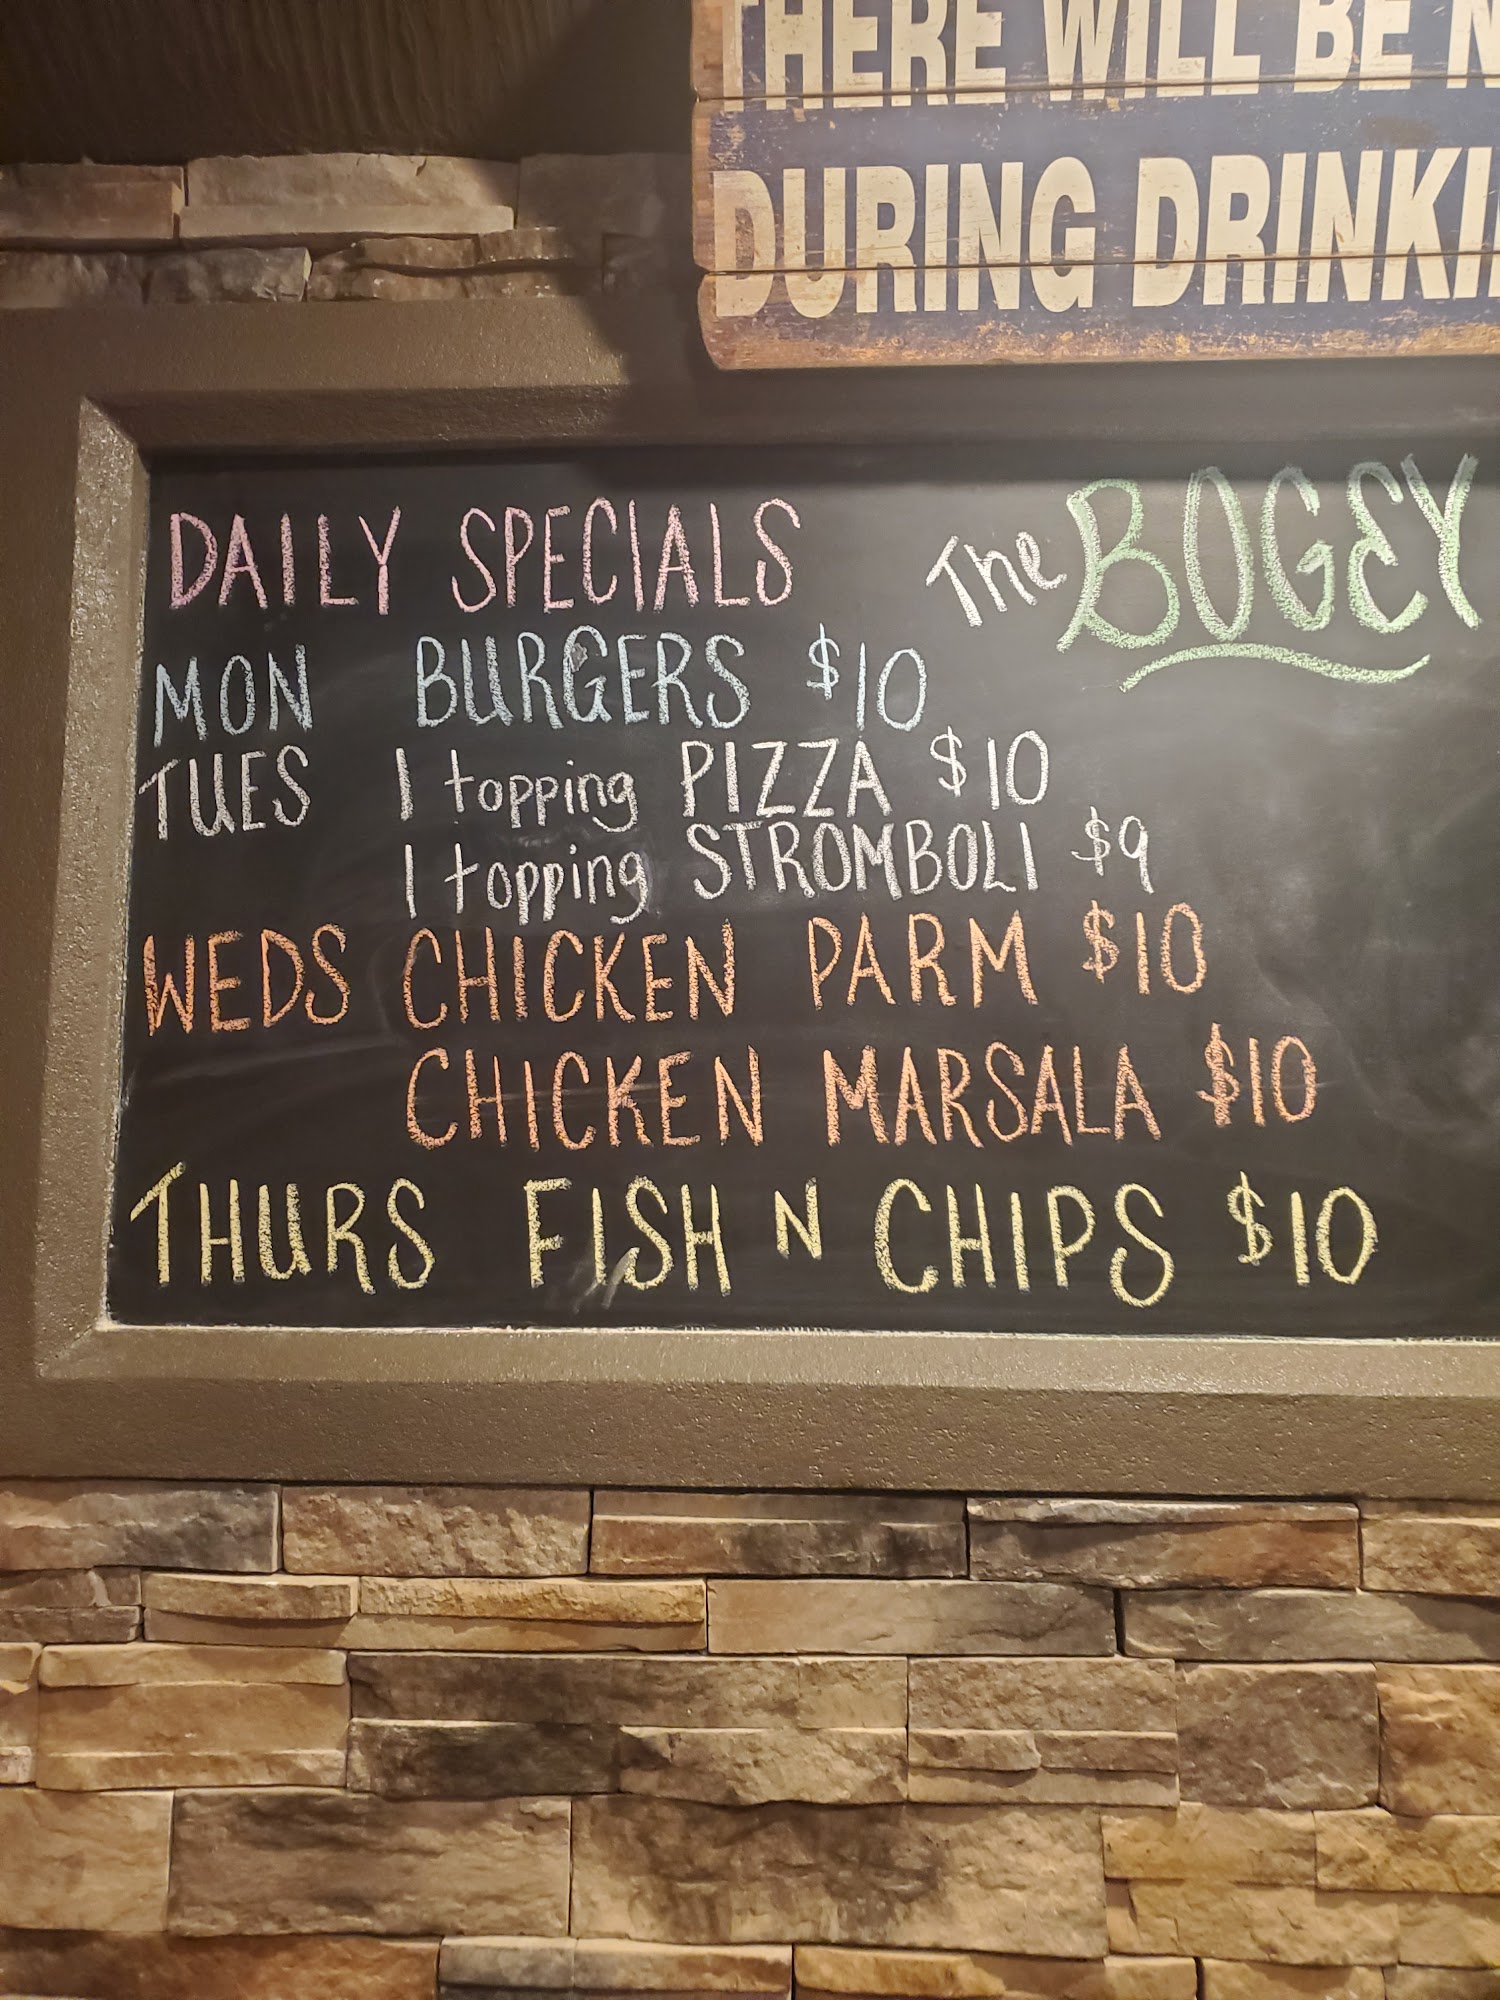 THERE WILL BE
DURING
DAILY SPECIALS
The BOGEY
MON BURGERS $10
TUES 1 topping PIZZA $10
1 topping STROMBOLI $9
WEDS CHICKEN PARM $10
CHICKEN MARSALA $10
THURS FISH N CHIPS $10